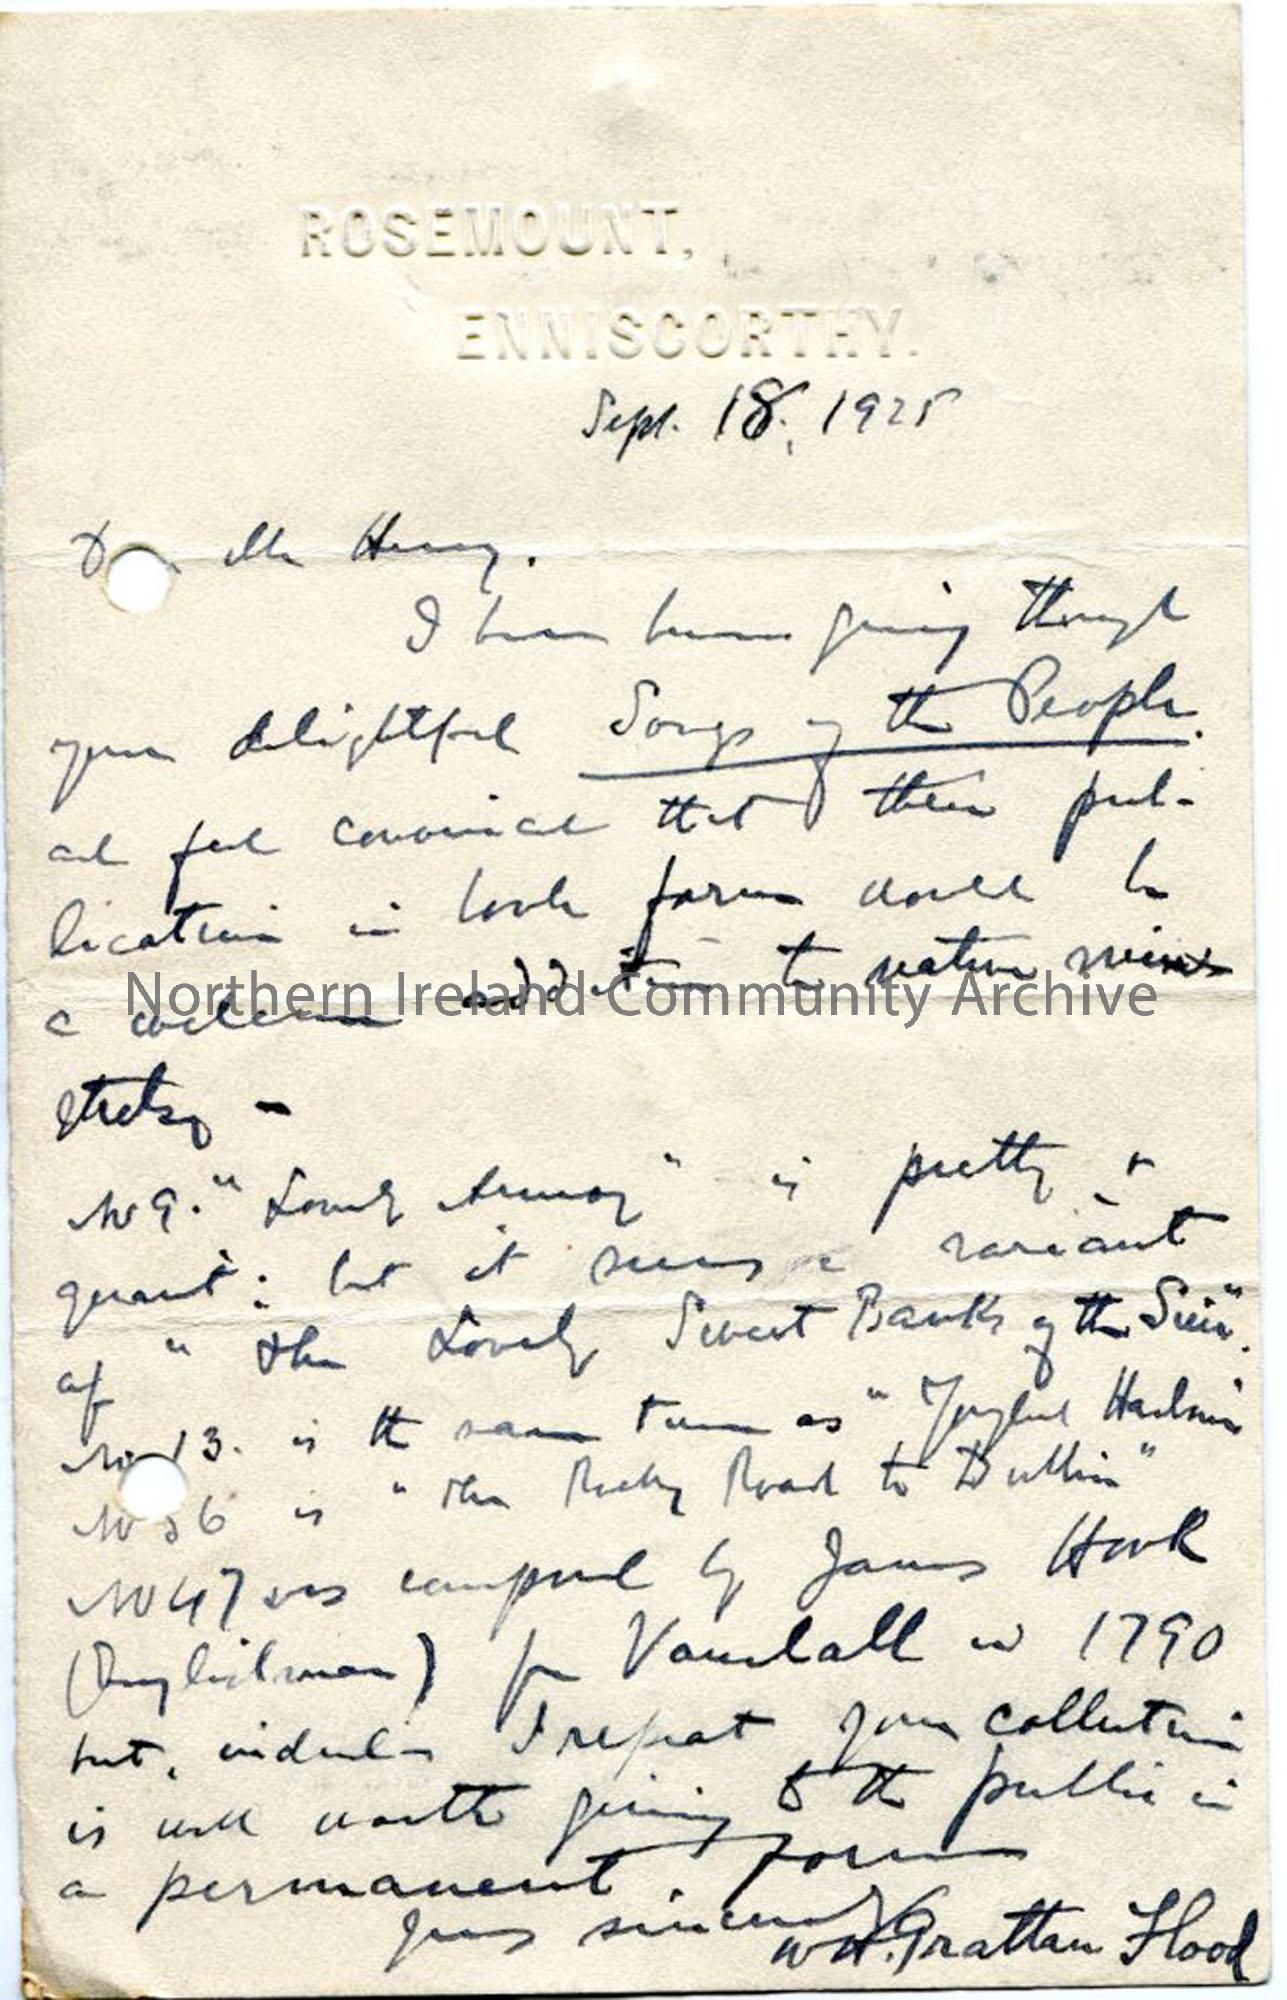 ROSEMOUNT,
ENNISCORTHY.
Sept. 18, 1925
Mr Henry.
I have been going through
your delightful Songs of the People.
and feel convinced that their pub-
lication in book form would be
a welcome addition to native mins
Northern Ireland Community Archive
strelsy -
No 9. "Lovely Armoy" is pretty &
quaint: but it seems a variant
of "The Lovely Sweet Banks of the Suir".
No 13. is the same tune as "Youghal Harbour
No 36 is "The Rocky Road to Dublin"
No 47 was composed by James Hook
(Englishman) for Vauxhall in 1790
but, indeed I repeat your collection
is well worth giving to the public in
a permanent form
Yours sincerely
W H. Grattan Flood